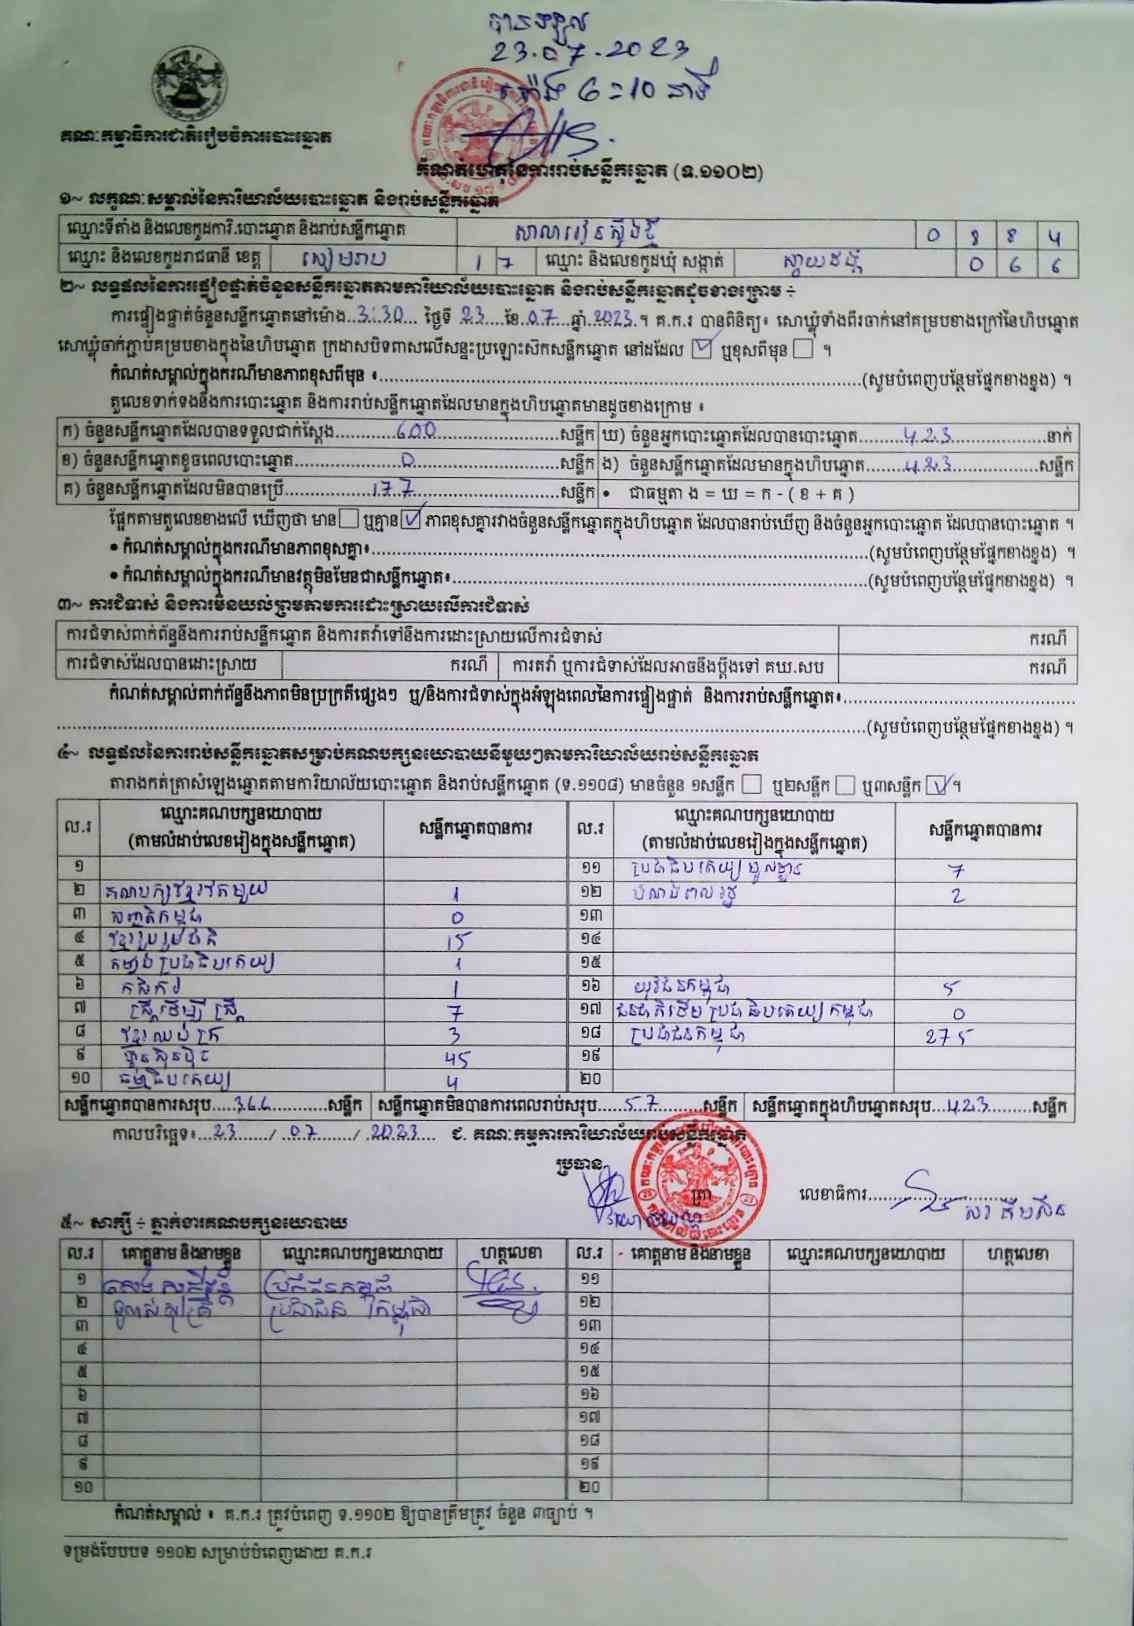 បានទទួល
23.07.2023
ម៉ោង 6:10 នាទី
គណៈកម្មាធិការជាតិរៀបចំការបោះឆ្នោត
កំណត់ហេតុនៃការរាប់សន្លឹកឆ្នោត (ទ.១១០២)
១~ លក្ខណៈសម្គាល់នៃការិយាល័យបោះឆ្នោត និងរាប់សន្លឹកឆ្នោត
ឈ្មោះទីតាំង និងលេខកូដការិ.បោះឆ្នោត និងរាប់សន្លឹកឆ្នោត សាលារៀនស្ទឹងថ្មី 0 8 8 4
ឈ្មោះ និងលេខកូដរាជធានី ខេត្ត សៀមរាប 1 7 ឈ្មោះ និងលេខកូដឃុំ សង្កាត់ ស្វាយដង្គំ 0 6 6
២~ លទ្ធផលនៃការផ្ទៀងផ្ទាត់ចំនួនសន្លឹកឆ្នោតតាមការិយាល័យបោះឆ្នោត និងរាប់សន្លឹកឆ្នោតដូចខាងក្រោម ÷
ការផ្ទៀងផ្ទាត់ចំនួនសន្លឹកឆ្នោតនៅម៉ោង 3:30 ថ្ងៃទី 23 ខែ 07 ឆ្នាំ 2023 ។ គ.ក.រ បានពិនិត្យ៖ សោឃ្លុំទាំងពីរចាក់នៅគម្របខាងក្រៅនៃហិបឆ្នោត
សោឃ្លុំចាក់ភ្ជាប់គម្របខាងក្នុងនៃហិបឆ្នោត ក្រដាសបិទពាសលើសន្ទះប្រឡោះសិកសន្លឹកឆ្នោត នៅដដែល ☑ ឬខុសពីមុន ☐ ។
កំណត់សម្គាល់ក្នុងករណីមានភាពខុសពីមុន ៖ (សូមបំពេញបន្ថែមផ្នែកខាងខ្នង) ។
តួលេខទាក់ទងនឹងការបោះឆ្នោត និងការរាប់សន្លឹកឆ្នោតដែលមានក្នុងហិបឆ្នោតមានដូចខាងក្រោម ៖
ក) ចំនួនសន្លឹកឆ្នោតដែលបានទទួលជាក់ស្តែង 600 សន្លឹក ឃ) ចំនួនអ្នកបោះឆ្នោតដែលបានបោះឆ្នោត 423 នាក់
ខ) ចំនួនសន្លឹកឆ្នោតខូចពេលបោះឆ្នោត 0 សន្លឹក ង) ចំនួនសន្លឹកឆ្នោតដែលមានក្នុងហិបឆ្នោត 423 សន្លឹក
គ) ចំនួនសន្លឹកឆ្នោតដែលមិនបានប្រើ 177 សន្លឹក • ជាធម្មតា ង = ឃ = ក - ( ខ + គ )
ផ្អែកតាមតួលេខខាងលើ ឃើញថា មាន ☐ ឬគ្មាន ☑ ភាពខុសគ្នារវាងចំនួនសន្លឹកឆ្នោតក្នុងហិបឆ្នោត ដែលបានរាប់ឃើញ និងចំនួនអ្នកបោះឆ្នោត ដែលបានបោះឆ្នោត ។
• កំណត់សម្គាល់ក្នុងករណីមានភាពខុសគ្នា៖ (សូមបំពេញបន្ថែមផ្នែកខាងខ្នង) ។
• កំណត់សម្គាល់ក្នុងករណីមានវត្ថុមិនមែនជាសន្លឹកឆ្នោត៖ (សូមបំពេញបន្ថែមផ្នែកខាងខ្នង) ។
៣~ ការជំទាស់ និងការមិនយល់ព្រមតាមការដោះស្រាយលើការជំទាស់
ការជំទាស់ពាក់ព័ន្ធនឹងការរាប់សន្លឹកឆ្នោត និងការតវ៉ាទៅនឹងការដោះស្រាយលើការជំទាស់ ករណី
ការជំទាស់ដែលបានដោះស្រាយ ករណី ការតវ៉ា ឬការជំទាស់ដែលអាចនឹងប្តឹងទៅ គឃ.សប ករណី
កំណត់សម្គាល់ពាក់ព័ន្ធនឹងភាពមិនប្រក្រតីផ្សេងៗ ឬ/និងការជំទាស់ក្នុងអំឡុងពេលនៃការផ្ទៀងផ្ទាត់ និងការរាប់សន្លឹកឆ្នោត៖
(សូមបំពេញបន្ថែមផ្នែកខាងខ្នង) ។
៤~ លទ្ធផលនៃការរាប់សន្លឹកឆ្នោតសម្រាប់គណបក្សនយោបាយនីមួយៗតាមការិយាល័យរាប់សន្លឹកឆ្នោត
តារាងកត់ត្រាសំឡេងឆ្នោតតាមការិយាល័យបោះឆ្នោត និងរាប់សន្លឹកឆ្នោត (ទ.១១០៨) មានចំនួន ១សន្លឹក ☐ ឬ២សន្លឹក ☐ ឬ៣សន្លឹក ☑ ។
ល.រ ឈ្មោះគណបក្សនយោបាយ (តាមលំដាប់លេខរៀងក្នុងសន្លឹកឆ្នោត) សន្លឹកឆ្នោតបានការ ល.រ ឈ្មោះគណបក្សនយោបាយ (តាមលំដាប់លេខរៀងក្នុងសន្លឹកឆ្នោត) សន្លឹកឆ្នោតបានការ
១ ១១ ប្រជាធិបតេយ្យមូលដ្ឋាន 7
២ គណបក្សខ្មែរតែមួយ 1 ១២ បំណងពលរដ្ឋ 2
៣ សញ្ជាតិកម្ពុជា 0 ១៣
៤ ខ្មែររួបរួមជាតិ 15 ១៤
៥ តម្លាងប្រជាធិបតេយ្យ 1 ១៥
៦ កសិករ 1 ១៦ យុវជនកម្ពុជា 5
៧ ស្ត្រីដើម្បីស្ត្រី 7 ១៧ ជនជាតិដើមប្រជាធិបតេយ្យកម្ពុជា 0
៨ ខ្មែរឈប់ក្រ 3 ១៨ ប្រជាជនកម្ពុជា 275
៩ ហ៊្វុនស៊ិនប៉ិច 45 ១៩
១០ ធម្មាធិបតេយ្យ 4 ២០
សន្លឹកឆ្នោតបានការសរុប 366 សន្លឹក សន្លឹកឆ្នោតមិនបានការពេលរាប់សរុប 57 សន្លឹក សន្លឹកឆ្នោតក្នុងហិបឆ្នោតសរុប 423 សន្លឹក
កាលបរិច្ឆេទ៖ 23 / 07 / 2023 ជ. គណៈកម្មការការិយាល័យរាប់សន្លឹកឆ្នោត
ប្រធាន
ត្រា លេខាធិការ
៥~ សាក្សី ÷ ភ្នាក់ងារគណបក្សនយោបាយ
ល.រ គោត្តនាម និងនាមខ្លួន ឈ្មោះគណបក្សនយោបាយ ហត្ថលេខា ល.រ គោត្តនាម និងនាមខ្លួន ឈ្មោះគណបក្សនយោបាយ ហត្ថលេខា
១ ប្រជាជនកម្ពុជា ១១
២ ប្រជាជនកម្ពុជា ១២
៣ ១៣
៤ ១៤
៥ ១៥
៦ ១៦
៧ ១៧
៨ ១៨
៩ ១៩
១០ ២០
កំណត់សម្គាល់ ៖ គ.ក.រ ត្រូវបំពេញ ទ.១១០២ ឱ្យបានត្រឹមត្រូវ ចំនួន ៣ច្បាប់ ។
ទម្រង់បែបបទ ១១០២ សម្រាប់បំពេញដោយ គ.ក.រ